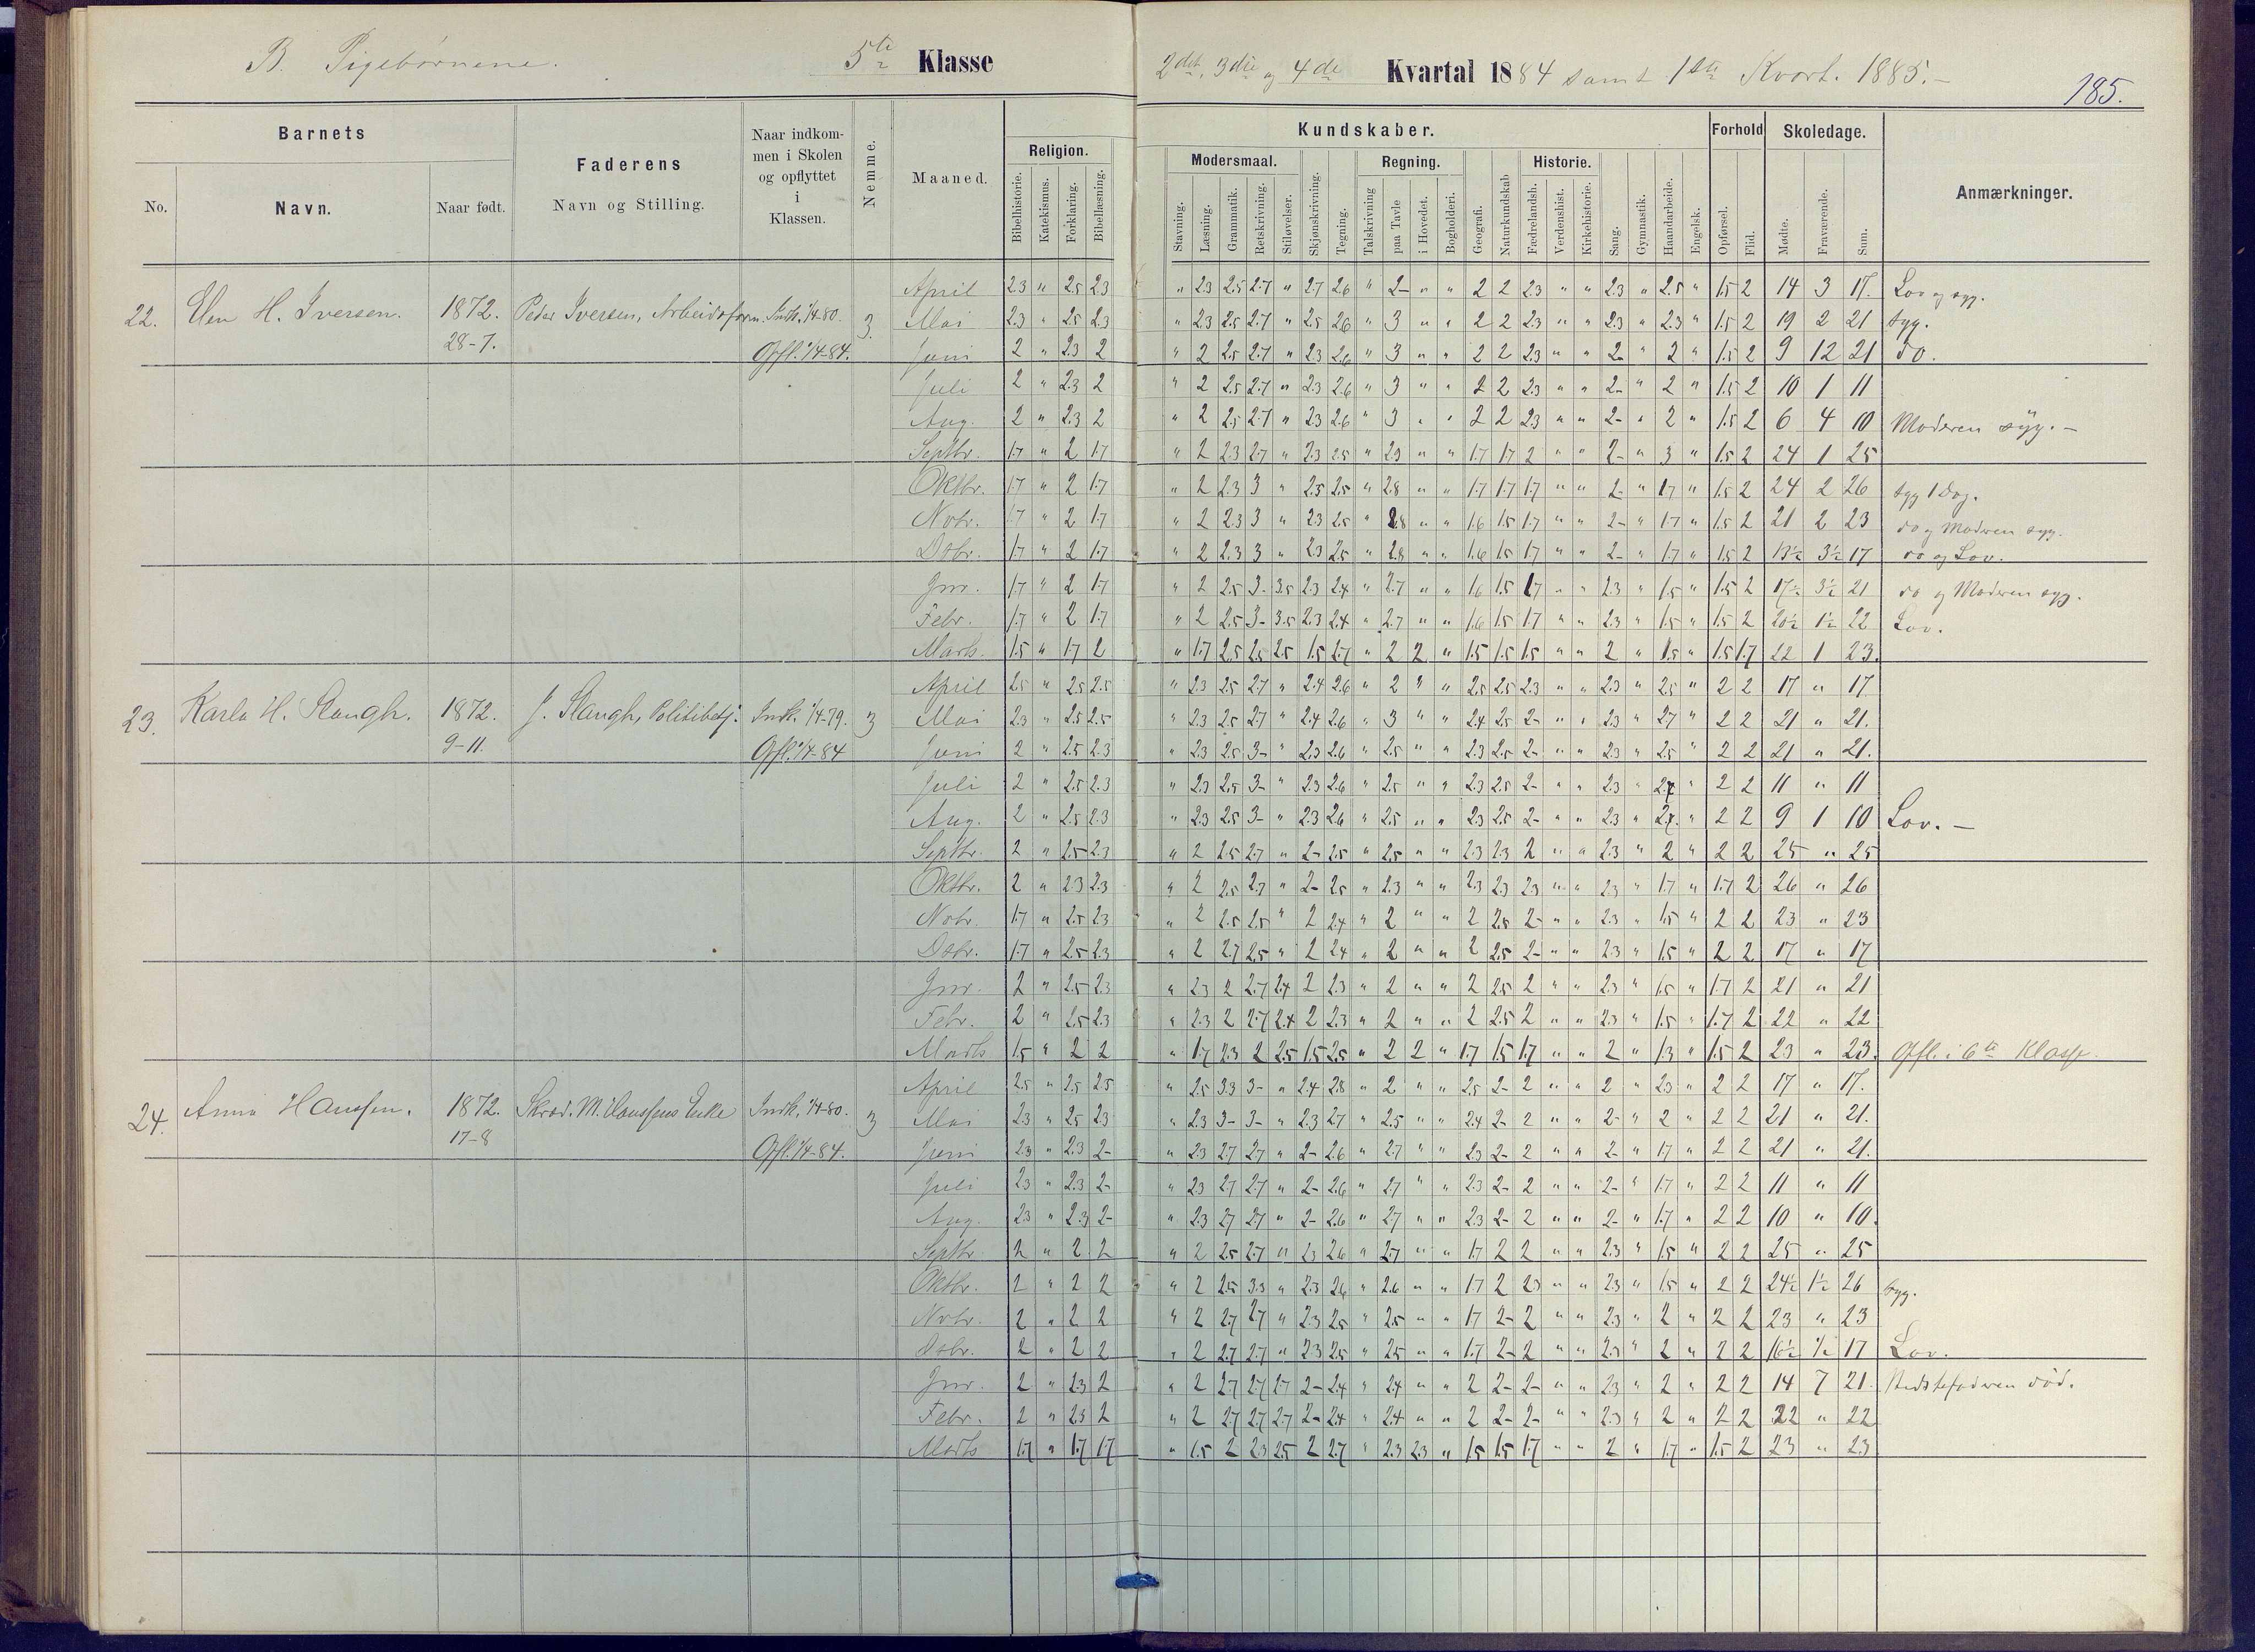 B. Pigebørnene. 5te Klasse 2det, 3die og 4de Kvartal 1884 samt 1ste Kvart. 1885.-
185.
Barnets
No. Navn. Naar født.
Faderens
Navn og Stilling.
Naar indkom-
men i Skolen
og opflyttet
i
Klassen.
Nemme.
Maaned.
Religion.
Bibelhistorie. Katekismus. Forklaring. Bibellæsning.
Kundskaber.
Modersmaal.
Stavning. Læsning. Grammatik. Retskrivning. Stiløvelser.
Skjønskrivning. Tegning.
Regning.
Talskrivning paa Tavle i Hovedet. Bogholderi.
Geografi. Naturkundskab
Historie.
Fædrelandsh. Verdenshist. Kirkehistorie.
Sang. Gymnastik. Haandarbeide. Engelsk.
Forhold
Opførsel. Flid.
Skoledage.
Mødte. Fraværende. Sum.
Anmærkninger.
22. Elen H. Iversen. 1872. 28-7. Peder Iversen, Arbeidsform. Indk. 1/4-80. Opfl. 1/4-84. 3.
April 2.3 " 2.5 2.3 " 2.3 2.5 2.7 " 2.7 2.6 " 2- " " 2 2 2.3 " " 2.3 " 2.5 " 1.5 2 14 3 17. Lov og syg.
Mai 2.3 " 2.5 2.3 " 2.3 2.5 2.7 " 2.5 2.6 " 3 " " 2 2 2.3 " " 2.3 " 2.3 " 1.5 2 19 2 21 syg.
Juni 2 " 2.3 2 " 2 2.5 2.7 " 2.3 2.6 " 3 " " 2 2 2.3 " " 2- " 2 " 1.5 2 9 12 21 do.
Juli 2 " 2.3 2 " 2 2.5 2.7 " 2.3 2.6 " 3 " " 2 2 2.3 " " 2- " 2 " 1.5 2 10 1 11
Aug. 2 " 2.3 2 " 2 2.5 2.7 " 2.3 2.6 " 3 " " 2 2 2.3 " " 2- " 2 " 1.5 2 6 4 10 Moderen syg. -
Septbr. 1.7 " 2 1.7 " 2 2.3 2.7 " 2.3 2.5 " 2.9 " " 1.7 1.7 2 " " 2- " 3 " 1.5 2 24 1 25
Oktbr. 1.7 " 2 1.7 " 2 2.3 3 " 2.5 2.5 " 2.8 " " 1.7 1.7 1.7 " " 2- " 1.7 " 1.5 2 24 2 26 syg 1 Dag.
Novbr. 1.7 " 2 1.7 " 2 2.3 3 " 2.3 2.5 " 2.8 " " 1.6 1.5 1.7 " " 2- " 1.7 " 1.5 2 21 2 23 do og Moderen syg.
Dcbr. 1.7 " 2 1.7 " 2 2.3 3 " 2.3 2.5 " 2.8 " " 1.6 1.5 1.7 " " 2- " 1.7 " 1.5 2 13½ 3½ 17 do og Lov.
Jnr. 1.7 " 2 1.7 " 2 2.5 3- 3.5 2.3 2.4 " 2.7 " " 1.6 1.5 1.7 " " 2.3 " 1.5 " 1.5 2 17½ 3½ 21 do og Moderen syg.
Febr. 1.7 " 2 1.7 " 2 2.5 3- 3.5 2.3 2.4 " 2.7 " " 1.6 1.5 1.7 " " 2.3 " 1.5 " 1.5 2 20½ 1½ 22 Lov.
Marts. 1.5 " 1.7 2 " 1.7 2.5 2.5 2.5 1.5 2.7 " 2 2 " 1.5 1.5 1.5 " " 2 " 1.5 " 1.5 1.7 22 1 23.
23. Karla H. Slangh. 1872. 9-11. J. Slangh, Politibetj. Indk. 1/4-79. Opfl. 1/4-84 3
April 2.5 " 2.5 2.5 " 2.3 2.5 2.7 " 2.4 2.6 " 2 " " 2.5 2.5 2.3 " " 2.3 " 2.5 " 2 2 17 " 17.
Mai 2.3 " 2.5 2.5 " 2.3 2.5 2.7 " 2.4 2.6 " 3 " " 2.4 2.5 2- " " 2.3 " 2.7 " 2 2 21 " 21.
Juni 2 " 2.5 2.3 " 2.3 2.5 3- " 2.3 2.6 " 2.5 " " 2.3 2.5 2- " " 2.3 " 2.5 " 2 2 21 " 21.
Juli 2 " 2.5 2.3 " 2.3 2.5 3- " 2.3 2.6 " 2.5 " " 2.3 2.5 2- " " 2.3 " " 2 2 11 " 11
Aug. 2 " 2.5 2.3 " 2.3 2.5 3- " 2.3 2.6 " 2.5 " " 2.3 2.5 2- " " 2.3 " " 2 2 9 1 10 Lov. -
Septbr. 2 " 2.5 2.3 " 2 2.5 2.7 " 2- 2.5 " 2.5 " " 2.3 2.3 2 " " 2.3 " 2 " 2 2 25 " 25
Oktbr. 2 " 2.3 2.3 " 2 2.5 2.7 " 2- 2.5 " 2.3 " " 2.3 2.3 2.3 " " 2.3 " 1.7 " 1.7 2 26 " 26
Novbr. 1.7 " 2.5 2.3 " 2 2.5 2.5 " 2 2.4 " 2 " " 2 2.5 2- " " 2.3 " 1.5 " 2 2 23 " 23
Dcbr. 1.7 " 2.5 2.3 " 2 2.7 2.5 " 2 2.4 " 2 " " 2 2.5 2- " " 2.3 " 1.5 " 2 2 17 " 17
Jnr. 2 " 2.5 2.3 " 2.3 2 2.7 2.4 2 2.3 " 2 " " 2 2.5 2 " " 2.3 " 1.5 " 1.7 2 21 " 21
Febr. 2 " 2.5 2.3 " 2.3 2 2.7 2.4 2 2.3 " 2 " " 2 2.5 2 " " 2.3 " 1.5 " 1.7 2 22 " 22
Marts 1.5 " 2 2 " 1.7 2.3 2 2.5 1.5 2.5 " 2 2 " 1.7 1.5 1.7 " " 2 " 1.3 " 1.5 2 23 " 23. Opfl. i 6te Klasse.
24. Anna Hanssen. 1872. 17-8 Skræd. M. Hanssens Enke Indk. 1/4-80. Opfl. 1/4-84. 3
April 2.5 " 2.5 2.5 " 2.5 3.3 3- " 2.4 2.8 " 2 " " 2.5 2- 2 " " 2 " 2.3 " 2 2 17 " 17.
Mai 2.3 " 2.5 2.3 " 2.3 3- 3- " 2.3 2.7 " 2.5 " " 2.4 2- 2 " " 2- " 2 " 2 2 21 " 21.
Juni 2.3 " 2.3 2- " 2.3 2.7 2.7 " 2- 2.6 " 2.7 " " 2.3 2- 2 " " 2- " 1.7 " 2 2 21 " 21.
Juli 2.3 " 2.3 2- " 2.3 2.7 2.7 " 2- 2.6 " 2.7 " " 2.3 2- 2 " " 2- " 1.7 " 2 2 11 " 11
Aug. 2.3 " 2.3 2- " 2.3 2.7 2.7 " 2- 2.6 " 2.7 " " 2.3 2- 2 " " 2- " 1.7 " 2 2 10 " 10.
Septbr. 2 " 2 2 " 2 2.5 2.7 " 2.3 2.6 " 2.7 " " 1.7 2 2 " " 2.3 " 1.5 " 2 2 25 " 25
Oktbr. 2 " 2 2 " 2 2.5 3.3 " 2.3 2.6 " 2.6 " " 1.7 2 2.3 " " 2.3 " 1.5 " 2 2 24½ 1½ 26 syg.
Novbr. 2 " 2 2 " 2 2.7 2.7 " 2.3 2.5 " 2.5 " " 1.7 2- 2 " " 2.3 " 2 " 2 2 23 " 23
Dcbr. 2 " 2 2 " 2 2.7 2.7 " 2.3 2.5 " 2.5 " " 1.7 2- 2 " " 2.3 " 2 " 2 2 16½ ½ 17 Lov.
Jnr. 2 " 2.3 2 " 2 2.7 2.7 2.7 2- 2.4 " 2.4 " " 2 2- 2- " " 2.3 " 2 " 2 2 14 7 21. død.
Febr. 2 " 2.3 2 " 2 2.7 2.7 2.7 2- 2.4 " 2.4 " " 2 2- 2- " " 2.3 " 2 " 2 2 22 " 22
Marts 1.7 " 1.7 1.7 " 1.5 2 2.3 2.5 2 2.7 " 2.3 2.3 " 1.5 1.5 1.7 " " 2 " 1.7 " 1.5 2 23 " 23